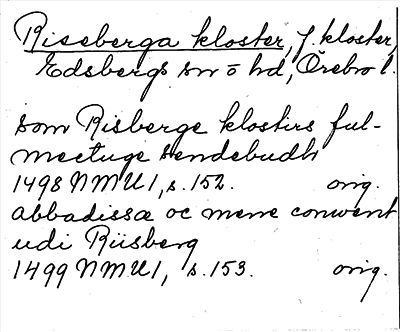 Riseberga kloster, f. kloster,
Edsbergs sn o hd, Örebro l.
som Risberge klostirs ful-
mectuge sendebudh
1498 NMU 1, s. 152. orig.
abbadissæ oc mene conwent
udi Riisberg
1499 NMU 1, s. 153. orig.